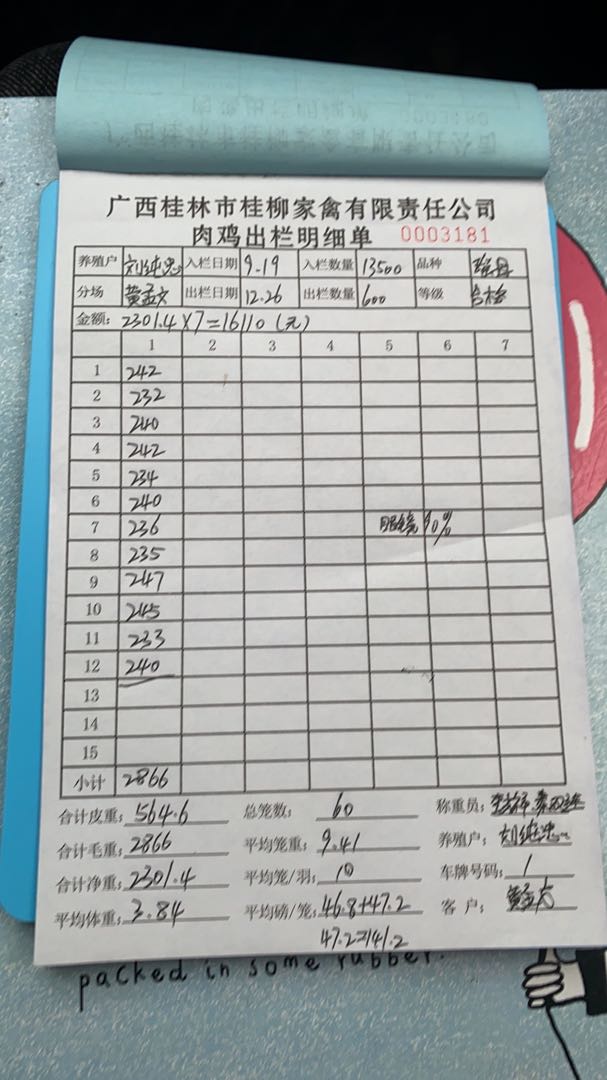 广西桂林市桂柳家禽有限责任公司
肉鸡出栏明细单 0003181
养殖户 刘纯忠 入栏日期 9.19 入栏数量 13500 品种
分场 黄孟文 出栏日期 12.26 出栏数量 600 等级 合格
金额: 2301.4×7=16110(元)
1 2 3 4 5 6 7
1 242
2 232
3 240
4 242
5 234
6 240
7 236 眼镜90%
8 235
9 247
10 245
11 233
12 240
13
14
15
小计 2866
合计皮重: 564.6 总笼数: 60 称重员:
合计毛重: 2866 平均笼重: 9.41 养殖户: 刘纯忠
合计净重: 2301.4 平均笼/羽: 10 车牌号码: 1
平均体重: 3.84 平均磅/笼: 46.8+47.2 客户: 黄孟文
47.2=141.2
packed in some rubber.